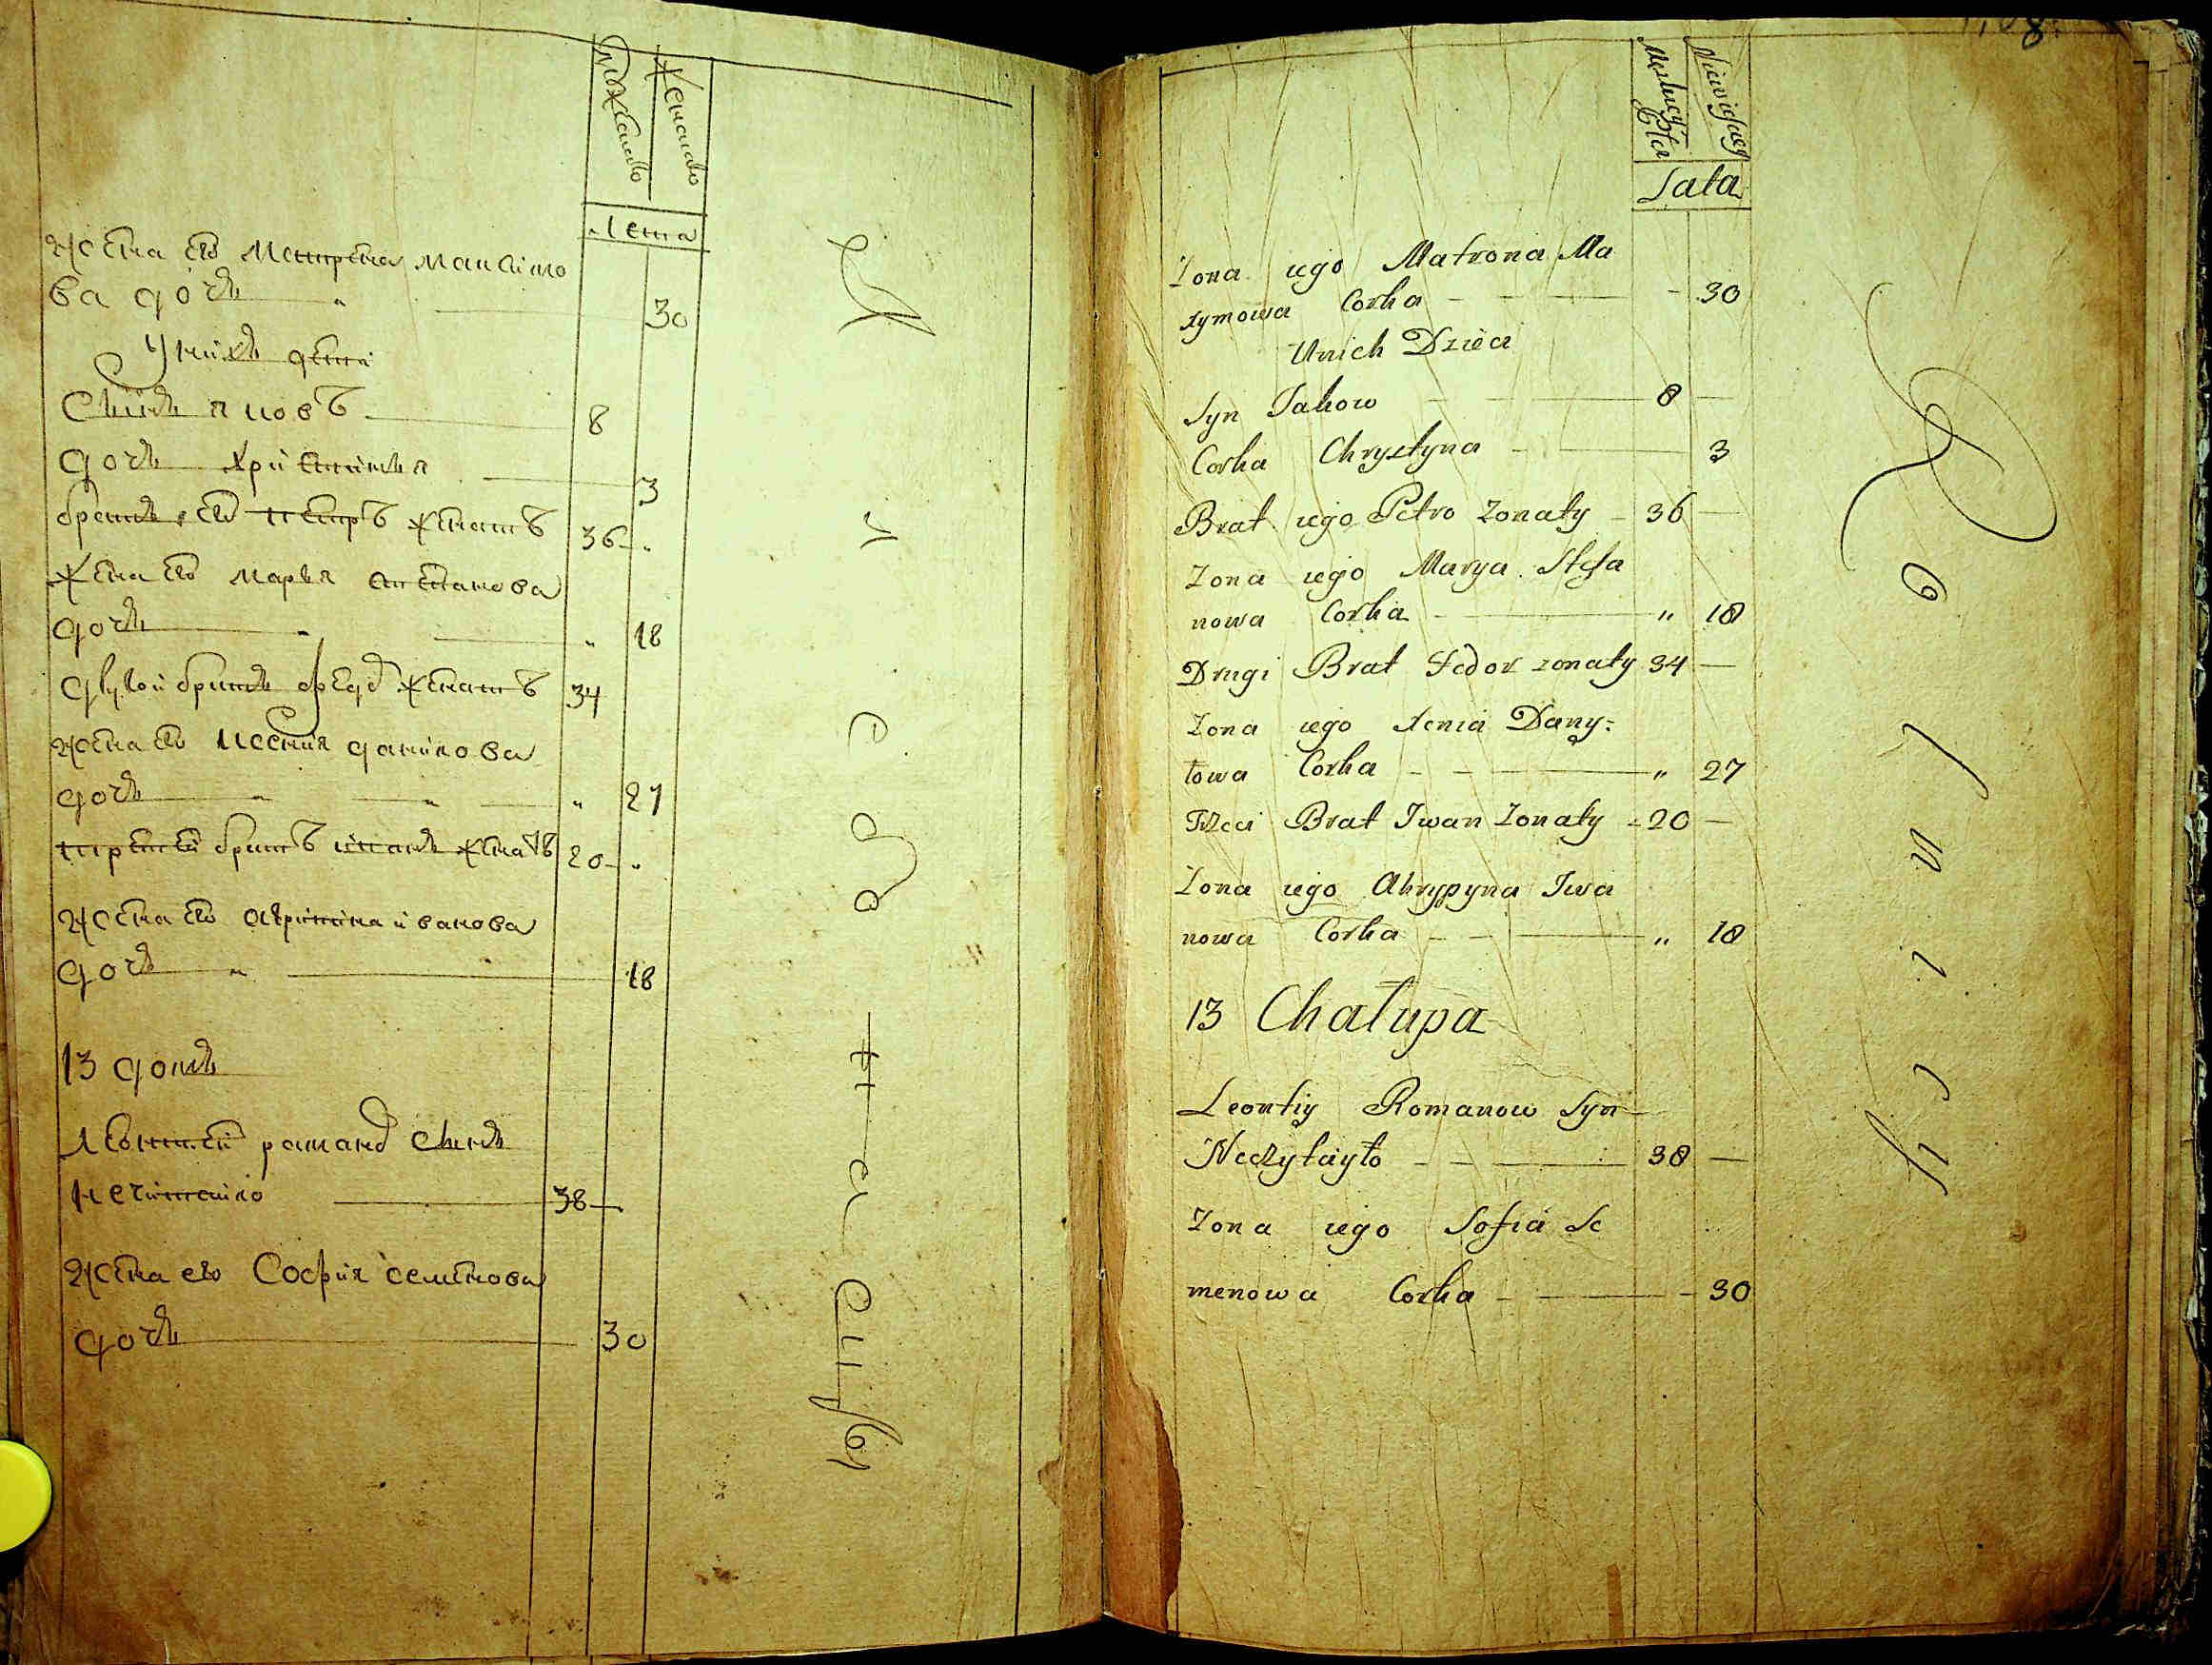 Женска
Лета
Жена его Матрена Максимо
ва дочь " 30
У них дети
Сынъ яковъ 8
дочь христинья 3
братъ его петръ женатъ 36 "
Жена его марья степанова
дочь " " 18
другой братъ федор женатъ 34
Жена его ксения данилова
дочь " " " 27
третей братъ иванъ женатъ 20 "
Жена его акрипина иванова
дочь " 18
13 домъ
Леонтей романов сынъ
нечитайло 38
Жена его София семенова
дочь 30
Łata
Zona iego Matrona Ma
xymowa Corka 30
Unich Dzieci
Syn Jakow 8
Corka Chrystyna 3
Brat iego Petro zonaty 36
Zona iego Marya Stefa
nowa Corka " 18
Drugi Brat Fedor zonaty 34
Zona iego Xenia Dany:
łowa Corka " 27
Trzeci Brat Jwan zonaty 20
Zona iego Ahrypyna Jwa
nowa Corka " 18
13 Chałupa
Leontiy Romanow Syn
Neczytayło 38
Zona iego Sofia Se
menowa Corka 30